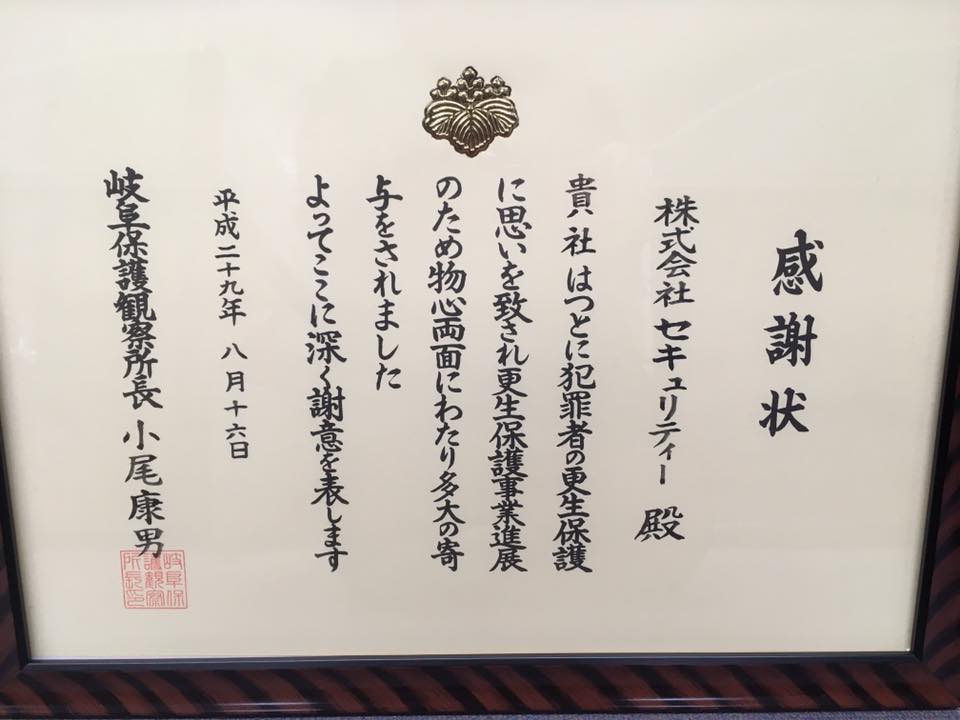 感謝状
株式会社セキュリティー 殿
貴社はつとに犯罪者の更生保護
に思いを致され更生保護事業進展
のため物心両面にわたり多大の寄
与をされました
よってここに深く謝意を表します
平成二十九年 八月十六日
岐阜保護観察所長 小尾康男
岐阜保
護観察
所長印